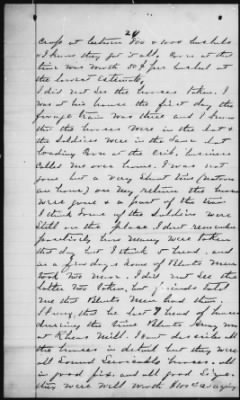 24
Crop at between 300 & 400 bushels
I know they got it all. Corn at the
time was worth 50¢ per bushel at
the lowest estimate.
I did not see the horses taken. I
was at his house the first day the
forage train was there and I know
that the horses were in the lot &
the Soldiers were in the same lot
loading Corn at the Crib, business
called me over home. I was not
gone but a very short time
an hour) on my return the horses
were gone & a part of the
I think some of the Soldiers were
still on the place I don't remember
positively how many were taken
that day but I think 5 head, and
in a few days some of Blunts men
took two more. I did not see the
latter two taken, but friends told
me that Blunts Men had them.
I say, that he lost 7 head of horses
during the time Blunts Army was
at Rheas Mill. I can't describe all
the horses in detail but they were
all sound serviceable horses, all
in good fix, and all good size.
they were well worth a